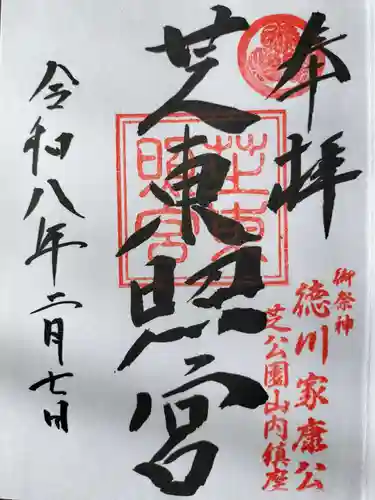 奉拝
御祭神
徳川家康公
芝公園山内鎮座
芝東照宮
芝東照宮
令和八年二月七日